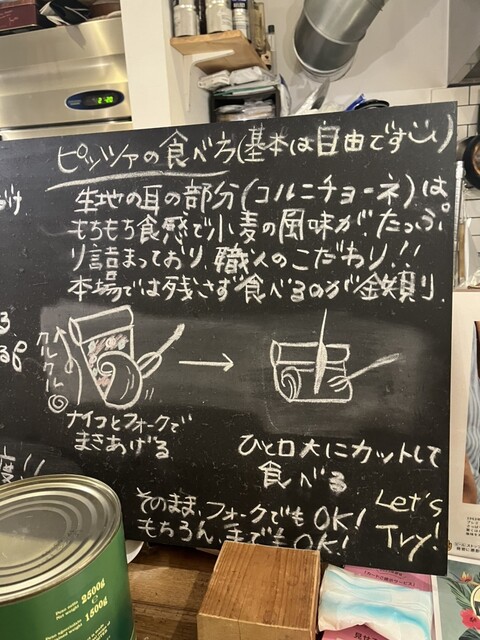 ピッツァの食べ方(基本は自由です)
生地の耳の部分(コルニチョーネ)は
もちもち食感で小麦の風味が、たっぷ
り詰まっており、職人のこだわり!!
本場では残さず食べるのが鉄則。
クルクル
ナイフとフォークで
まきあげる
ひと口大にカットして
食べる
そのまま、フォークでもOK!
もちろん、手でもOK!
Let's
Try!
Peso neto
Net weight
2500g
1500g